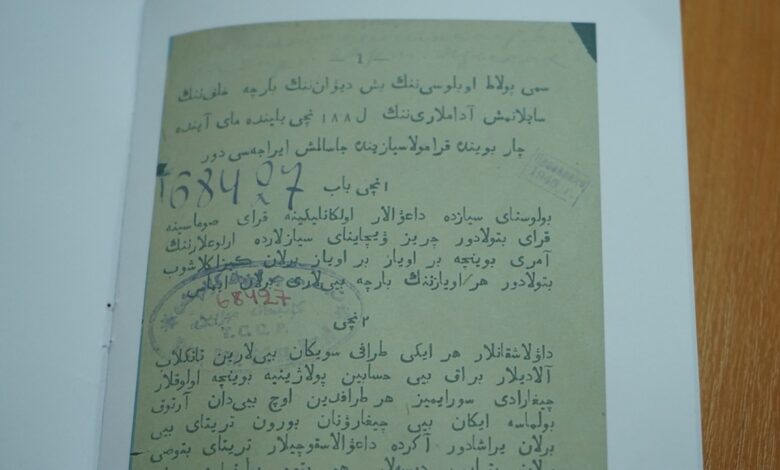 — 1 —
سمی پولاط اوبلوسی‌ننك بش دیوان‌ننك بارچه خلق‌ننك
سایلانمش آداملاری‌ننك ل ١٨٨ نچی یلینده مای آینده
چار بویینه قرامولاسیازینه جاسالمش ایراجه‌سی دور
68427
١نچی باب
بولوسنای سیازده داعوالار اولكانلیكینه قرای صوماسینه
قرای بتولادور چریز ویچاینای سیازلارده اراوعلارننك
آمری بوینچه بر اویاز بر اویاز برلان كیزلاشوب
بتولادور هر اویازننك بارچه بی‌لاری برلان
68427
Т.С.С.Р.
٢ نچی
داولاشقانلار هر ایكی طرافی سویكان بی‌لارین تانكلاب
آلادیلار براق بی حسابین پولاژینیه بوینچه اولوقلار
چیغارادی سورایمیز هر طرافدین اوچ بی‌دان آرتوق
بولماسه ایكان بی چیغارونان بورون تریتای بی
برلان یراشادور آكرده داعوالاسقوچیلار تریتای بی‌قوص